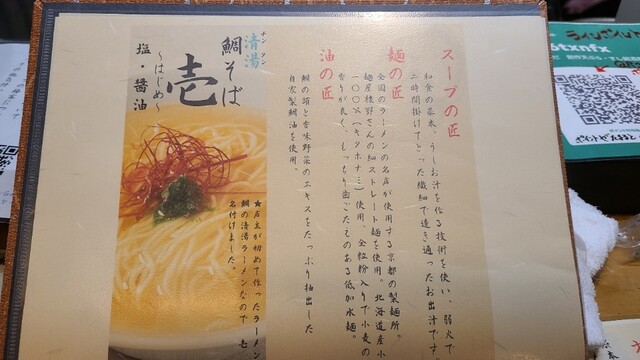 スープの匠
和食の基本、うしお汁を作る技術を使い、弱火で
二時間掛けてとった繊細で透き通ったお出汁です
麺の匠
全国のラーメンの名店が使用する京都の製麺所。
麺屋棣鄂さんの細ストレート麺を使用。北海道産小
一〇〇%(キタホナミ)使用、全粒粉入りで小麦の
香りが良く、もっちり歯ごたえのある低加水麺。
油の匠
鯛の頭と香味野菜のエキスをたっぷり抽出した
自家製鯛油を使用。
清湯
チンタン
鯛そば
壱
〜はじめ〜
塩・醤油
★店主が初めて作ったラーメン
鯛の清湯ラーメンなので 壱
名付けました。